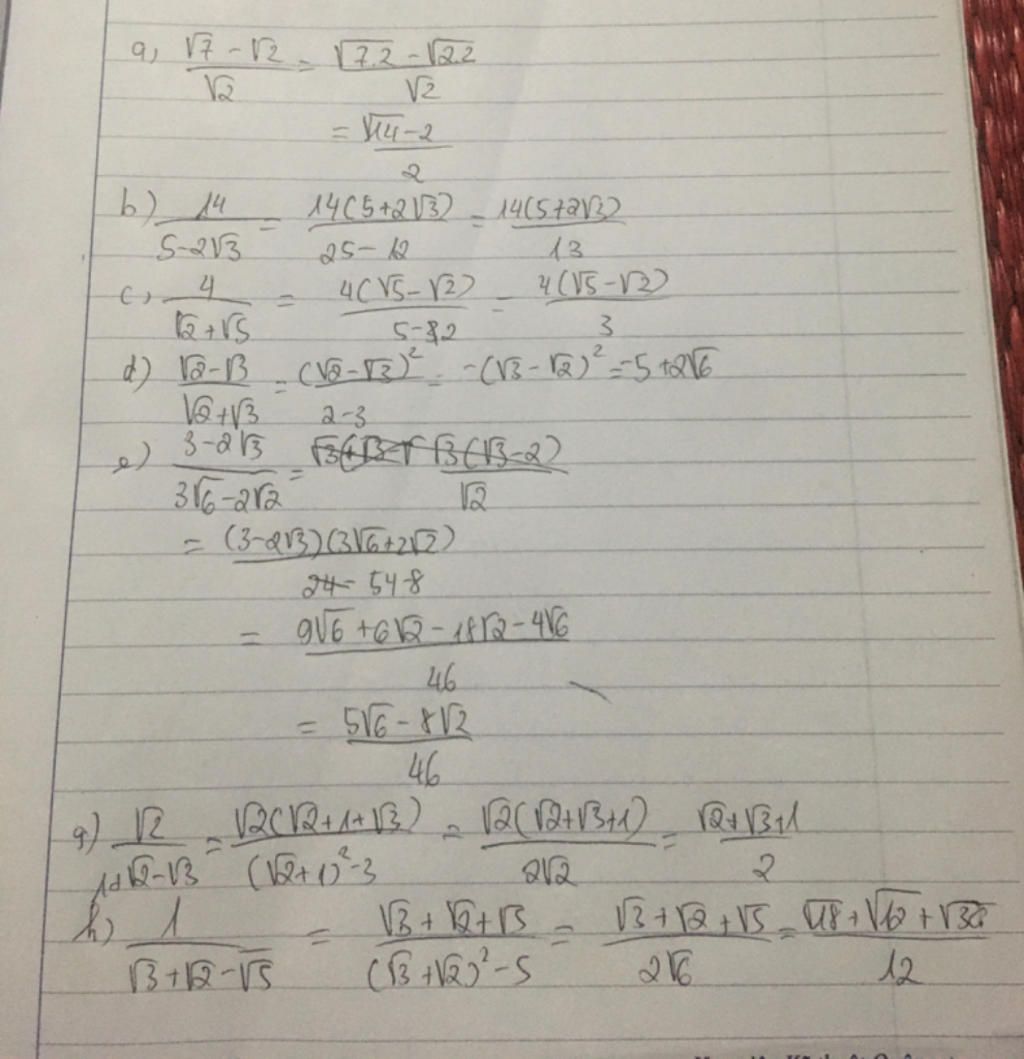 a, (√7 - √2)/√2 = (√7.2 - √2.2)/√2
= (√14 - 2)/2
b) 14/(5-2√3) = 14(5+2√3)/(25-12) = 14(5+2√3)/13
c, 4/(√2+√5) = 4(√5-√2)/(5-2) = 4(√5-√2)/3
d) (√2-√3)/(√2+√3) = (√2-√3)²/(2-3) = -(√3-√2)² = -5+2√6
e) (3-2√3)/(3√6-2√2) = √3(√3-2)/√2
= (3-2√3)(3√6+2√2)/(54-8)
= (9√6+6√2-18√2-4√6)/46
= (5√6-8√2)/46
g) √2/(1+√2-√3) = √2(√2+1+√3)/((√2+1)²-3) = √2(√2+√3+1)/(2√2) = (√2+√3+1)/2
h) 1/(√3+√2-√5) = (√3+√2+√5)/((√3+√2)²-5) = (√3+√2+√5)/(2√6) = (√18+√12+√30)/12